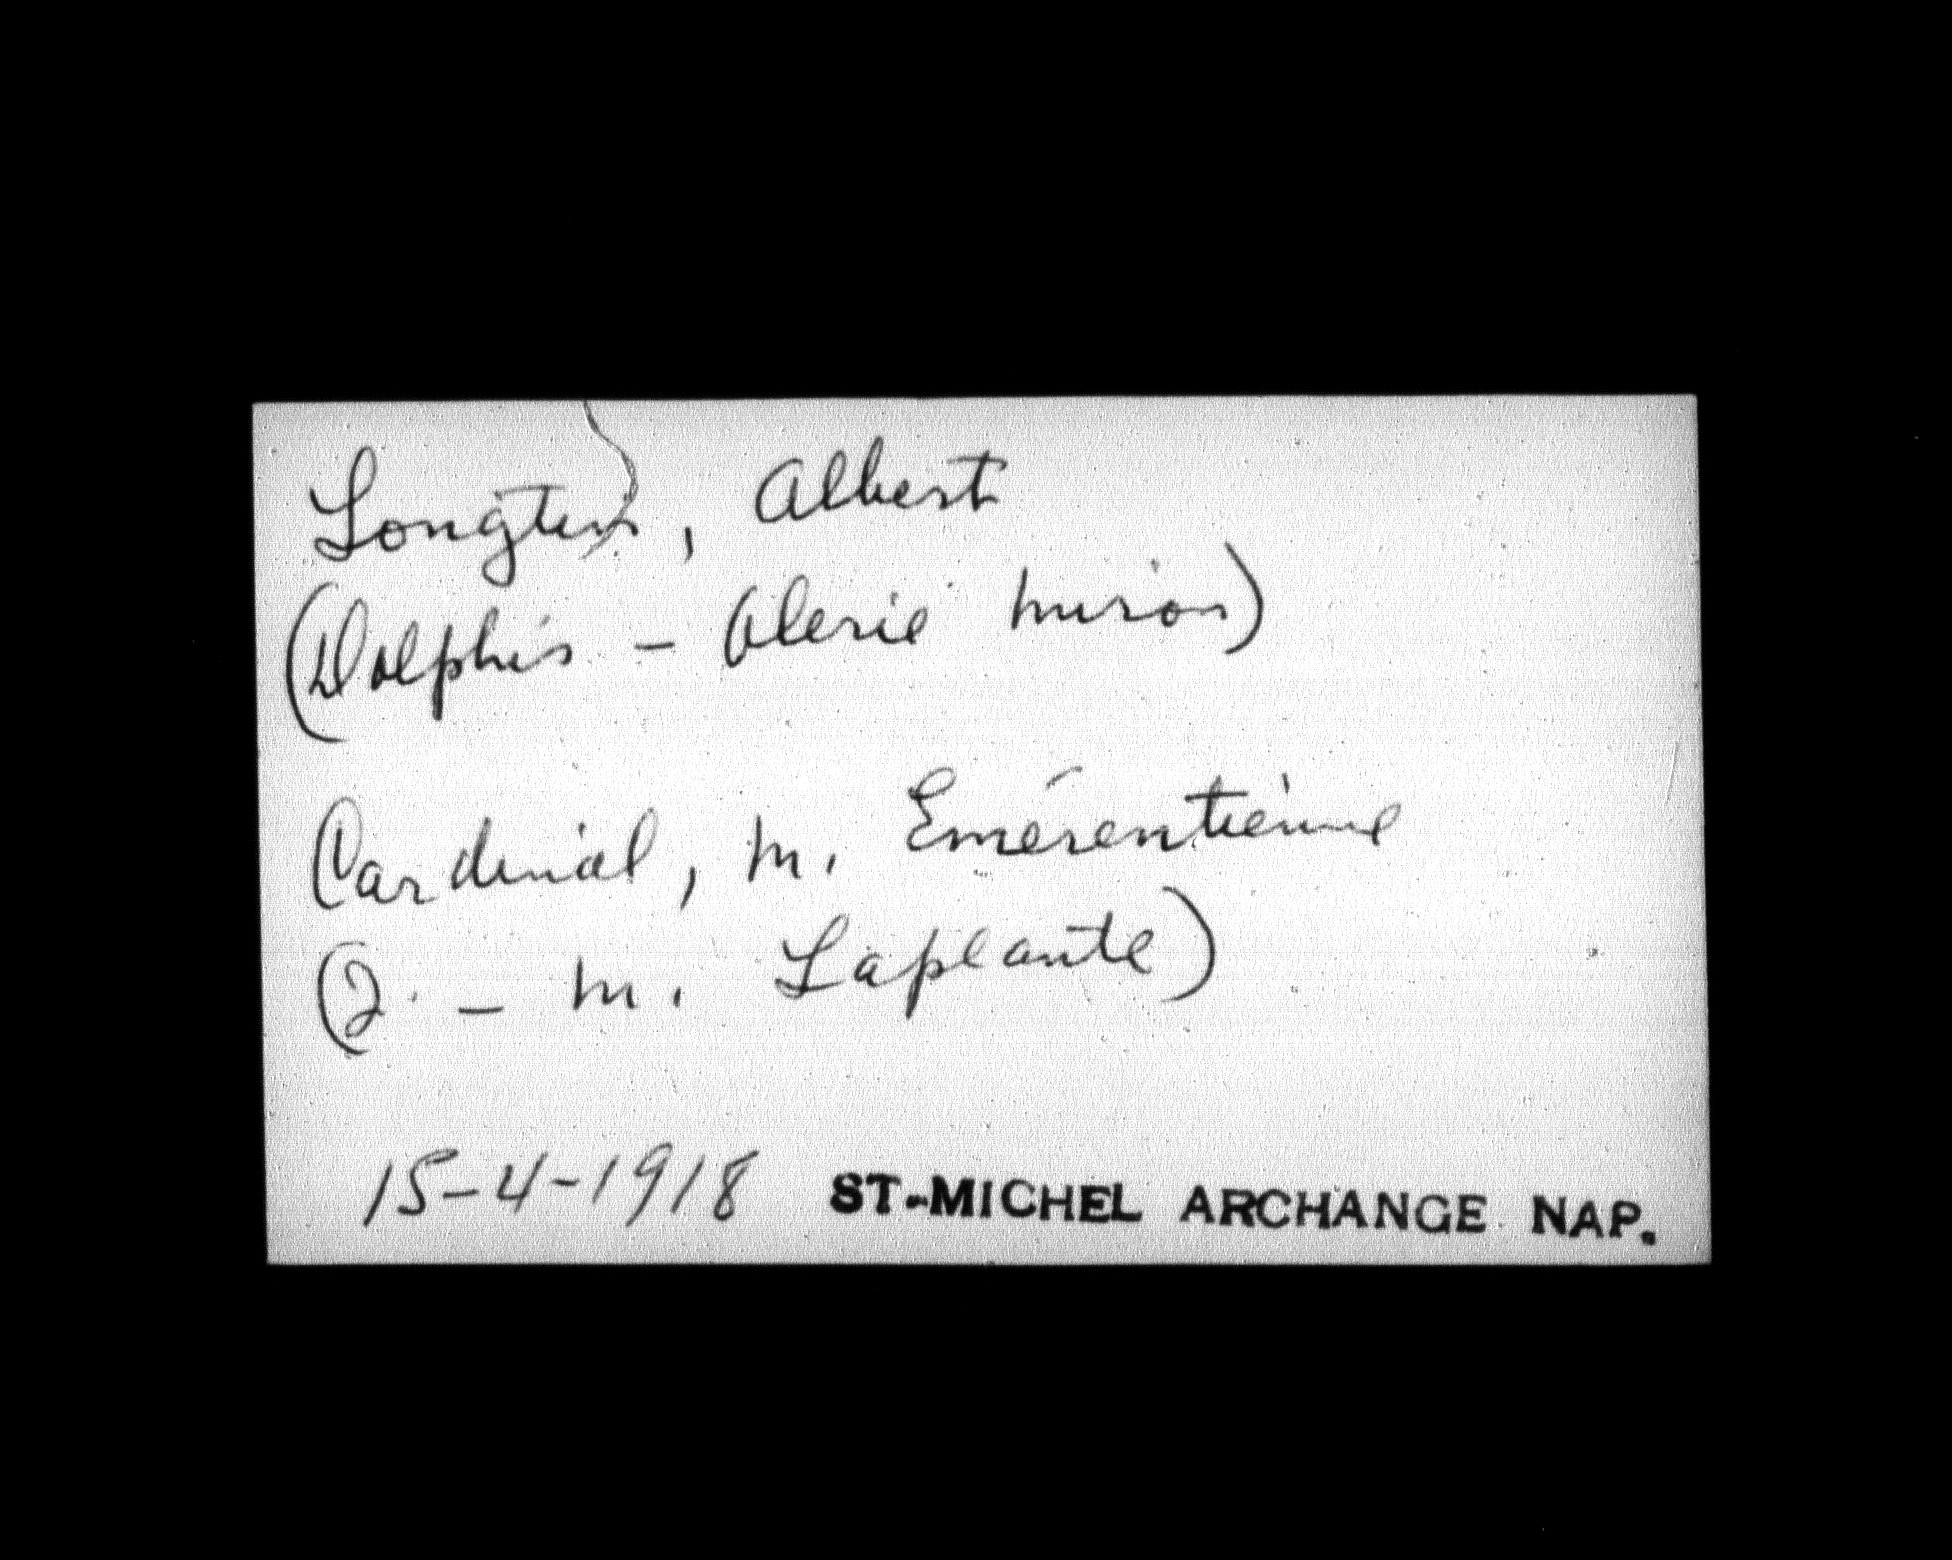 Longtin, Albert
(Dolphis - Olerie Miron)
Cardinal, M. Émérentienne
(J. - M. Laplante)
15-4-1918 ST-MICHEL ARCHANGE NAP.